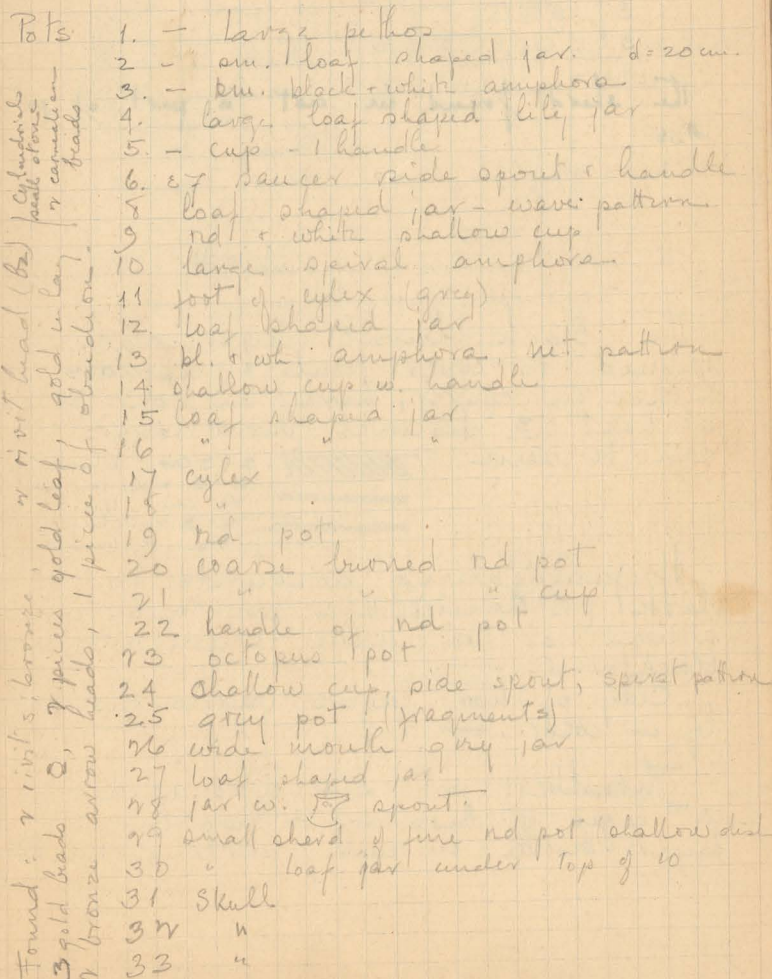 Pots. 1. - Large pithos
2 - sm. loaf shaped jar. d=20cm.
3. - sm. black + white amphora
4. large loaf shaped lily jar
5. - cup - 1 handle
6. & 7 saucer side spout + handle
8 loaf shaped jar - wave pattern
9 red + white shallow cup
10 large spiral amphora.
11 foot of cylex (grey)
12. loaf shaped jar
13 bl. + wh. amphora, net pattern
14 shallow cup w. handle
15 loaf shaped jar
16 " " "
17 cylex
18 "
19 red pot
20 coarse burned red pot
21 " " " cup
22 handle of red pot
23 octopus pot
24 shallow cup, side spout, spiral pattern
25 grey pot (fragments)
26 wide mouth grey jar
27 loaf shaped jar
28 jar w. spout.
29 small sherd of fine red pot (shallow dish
30 " loaf jar under top of 10
31 Skull
32 "
33 "
Found: 2 rivits, bronze, 2 rivit head (Bz)
3 gold beads 2 pieces gold leaf, gold inlay
2 bronze arrow heads, 1 piece of obsidion.
Cylindrical
seal stone
2 carnelian
beads